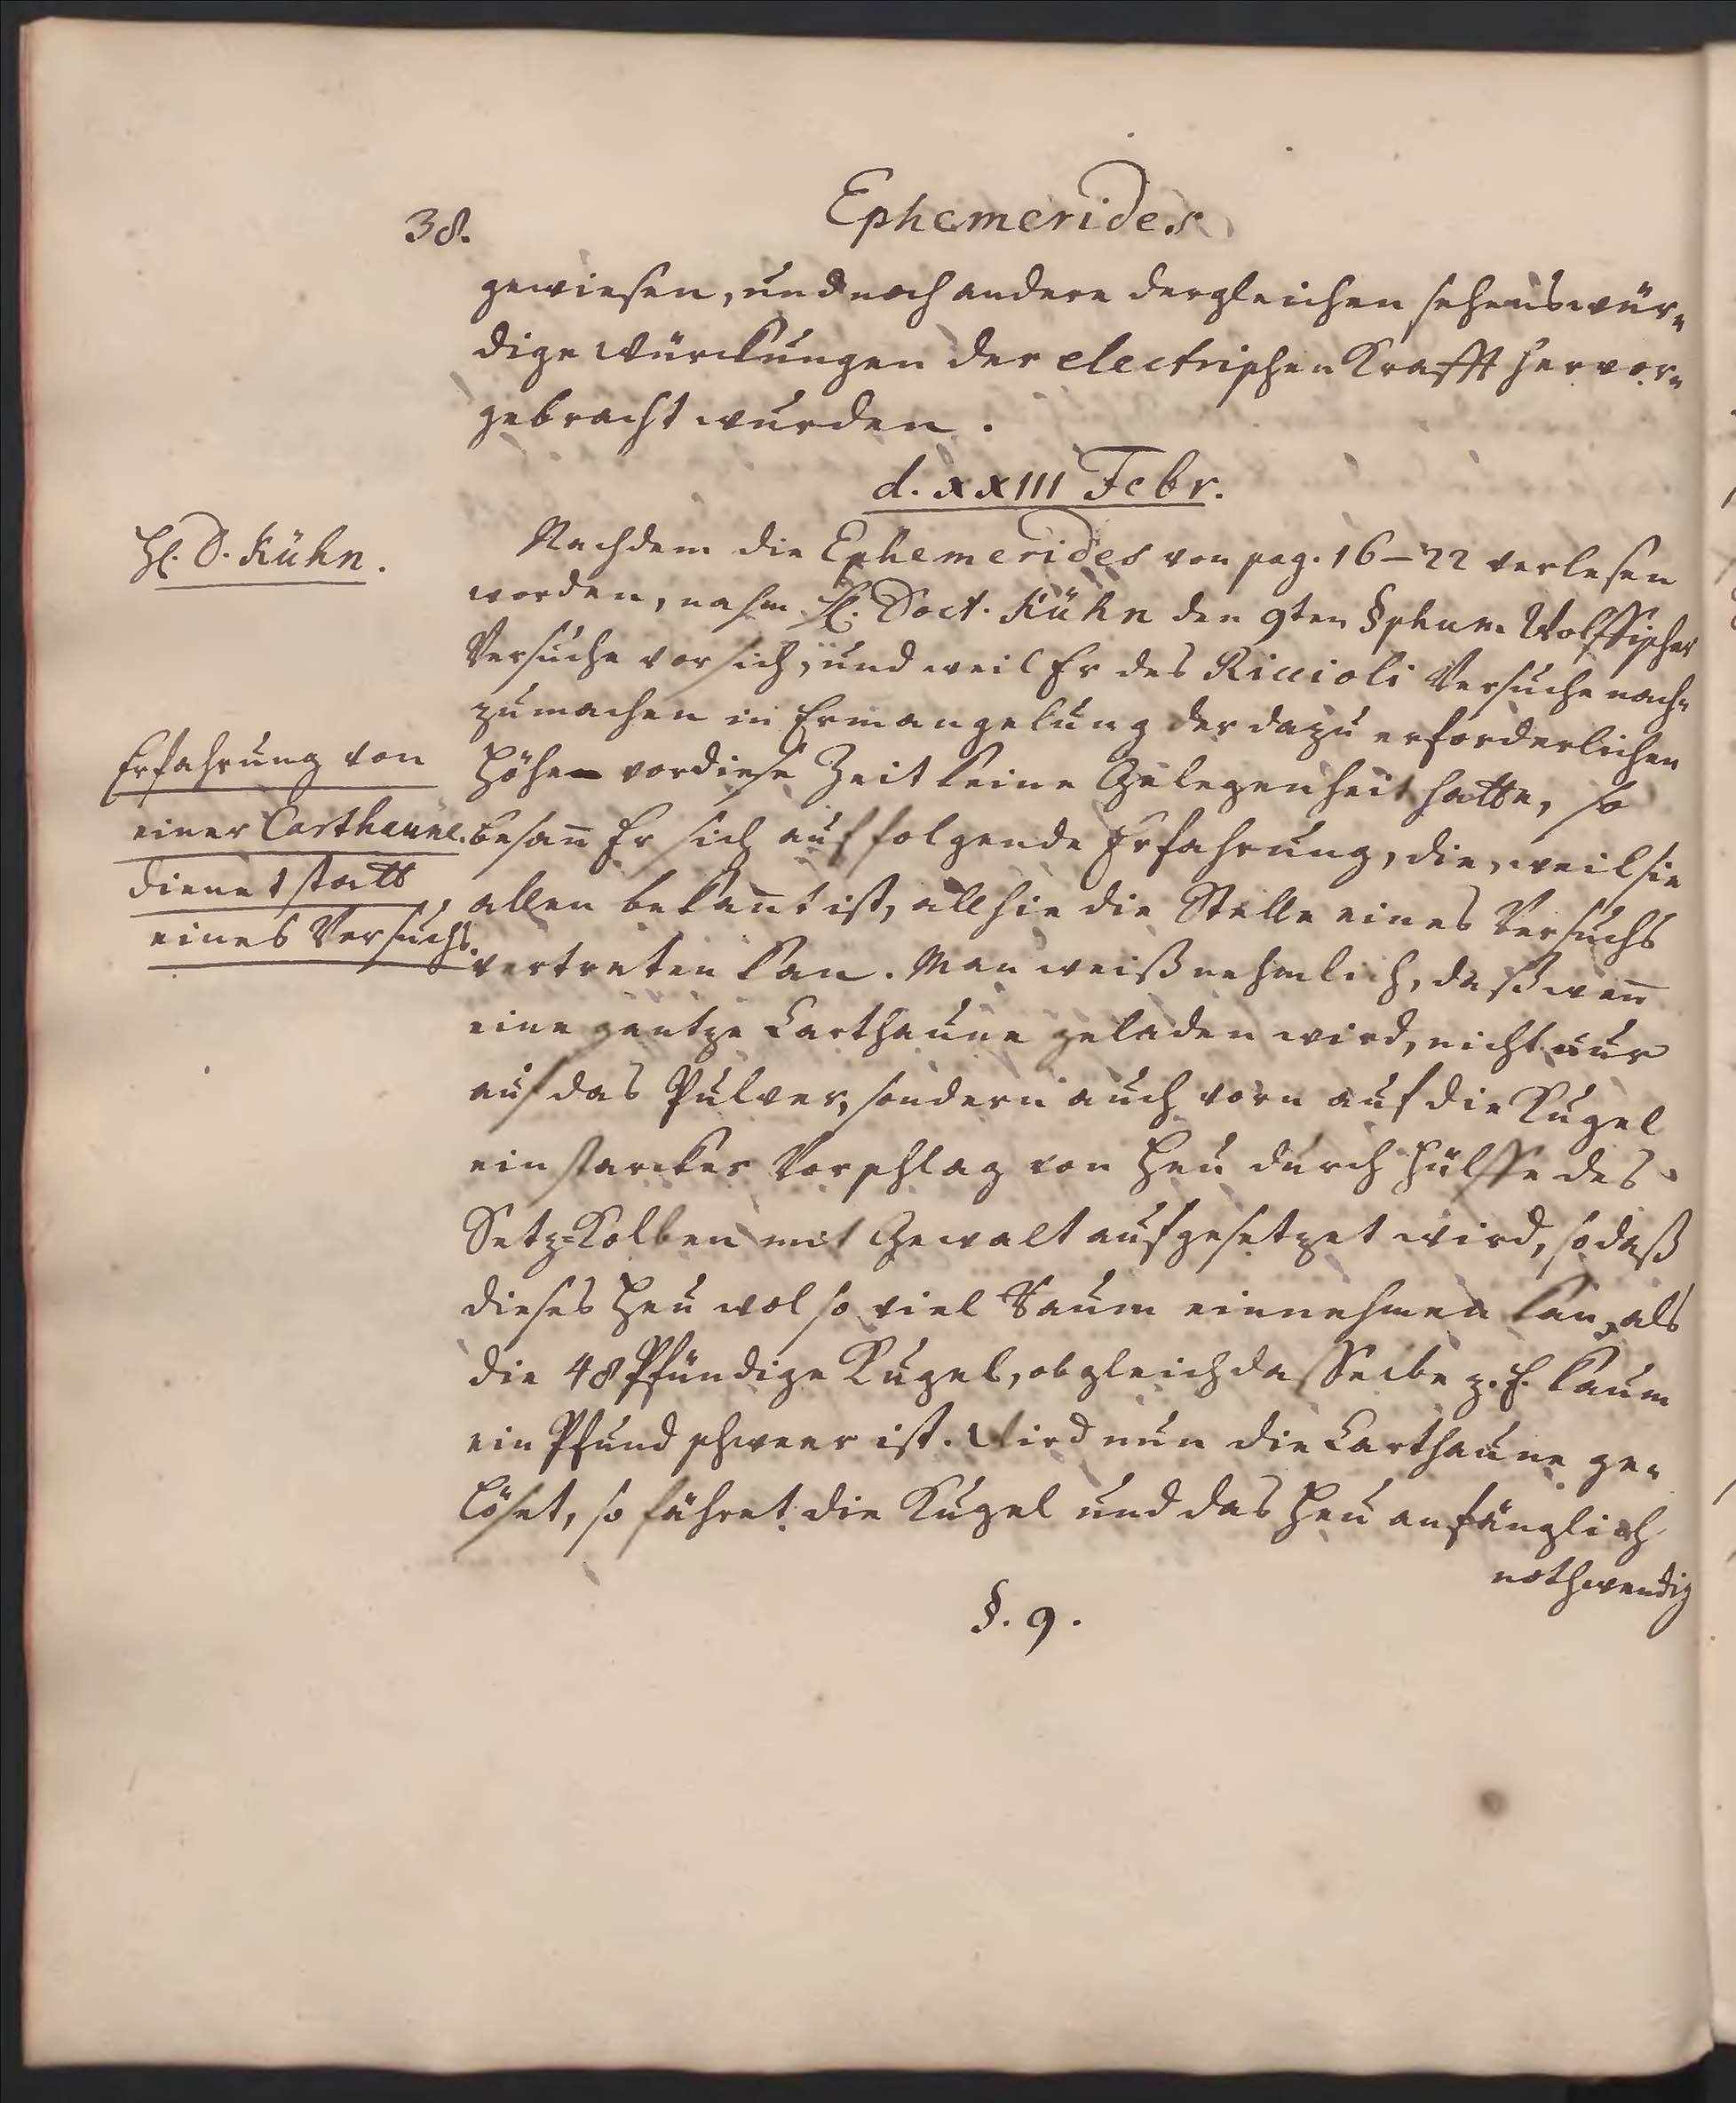 38.
Ephemerides
gewiesen, und noch andere dergleichen sehenswür-
dige Würckungen der electrischen Krafft hervor-
gebracht wurden.
d. XXIII Febr.
Hl. D. Kühn.
Nachdem die Ephemerides von pag. 16-22 verlesen
worden, nahm Hl. Doct. Kühn den 9ten §phum Wolffischer
Versuche vor sich, und weil Er des Riccioli Versuche nach-
zumachen in Ermangelung der dazu erforderlichen
Höhe vor diese Zeit keine Gelegenheit hatte, so
besann Er sich auf folgende Erfahrung, die, weil sie
allen bekannt ist, allhie die Stelle eines Versuchs
vertreten kan. Man weiß nehmlich, daß wenn
eine gantze Carthaune geladen wird, nicht nur
auf das Pulver, sondern auch vorn auf die Kugel
ein starcker Vorschlag von Heu durch Hülffe des
Setz-Kolben mit Gewalt aufgesetzet wird, so daß
dieses Heu wol so viel Raum einnehmen kan, als
die 48 Pfündige Kugel, ob gleich dasselbe z. E. kaum
ein Pfund schwer ist. Wird nun die Carthaune ge-
löset, so fähret die Kugel und das Heu anfänglich
nothwendig
Erfahrung von
einer Carthaune
dienet statt
eines Versuchs.
§. 9.